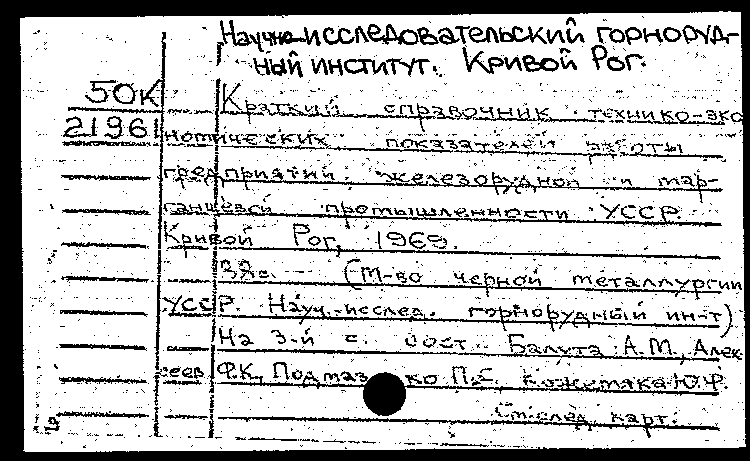 Научно-исследовательский горноруд-
ный институт. Кривой Рог.
50К Краткий справочник технико-эко
21961 номических показателей работы
предприятий железорудной и мар-
ганцевой промышленности УССР.
Кривой Рог, 1969.
38с. (М-во черной металлургии
УССР. Науч.-исслед. горнорудный ин-т)
На 3-й с. сост. Балута А.М., Алек
сеев Ф.К., П.Е. Кожемяка Ю.Ф.
См. след. карт.